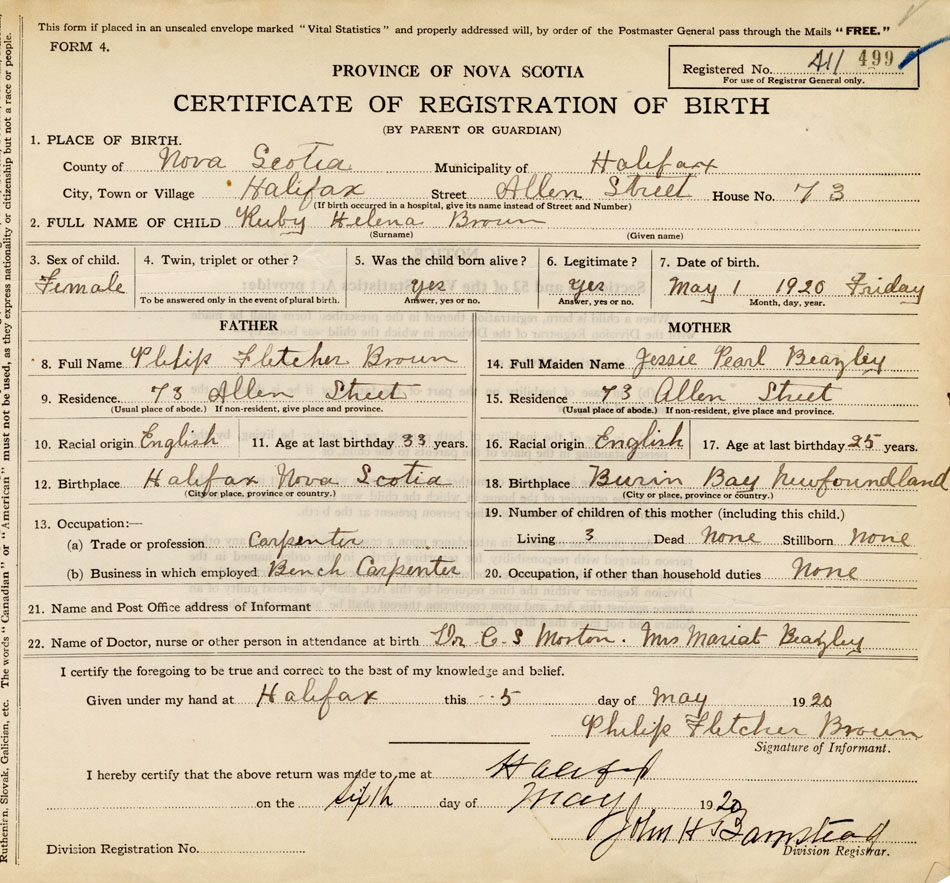 This form if placed in an unsealed envelope marked "Vital Statistics" and properly addressed will, by order of the Postmaster General pass through the Mails "FREE."
FORM 4.
Registered No. 411 499
For use of Registrar General only.
PROVINCE OF NOVA SCOTIA
CERTIFICATE OF REGISTRATION OF BIRTH
(BY PARENT OR GUARDIAN)
1. PLACE OF BIRTH.
County of Nova Scotia Municipality of Halifax
City, Town or Village Halifax Street Allen Street House No. 73
(If birth occurred in a hospital, give its name instead of Street and Number)
2. FULL NAME OF CHILD Ruby Helena Brown
(Surname) (Given name)
3. Sex of child. 4. Twin, triplet or other? 5. Was the child born alive? 6. Legitimate? 7. Date of birth.
Female Yes Yes May 1 1920 Friday
To be answered only in the event of plural birth. Answer, yes or no. Answer, yes or no. Month, day, year.
FATHER MOTHER
8. Full Name Philip Fletcher Brown 14. Full Maiden Name Jessie Pearl Beazley
9. Residence. 73 Allen Street 15. Residence 73 Allen Street
(Usual place of abode.) If non-resident, give place and province. (Usual place of abode.) If non-resident, give place and province.
10. Racial origin English 11. Age at last birthday 33 years. 16. Racial origin English 17. Age at last birthday 25 years.
12. Birthplace Halifax Nova Scotia 18. Birthplace Burin Bay Newfoundland
(City or place, province or country.) (City or place, province or country.)
13. Occupation:— 19. Number of children of this mother (including this child.)
(a) Trade or profession Carpenter Living 3 Dead None Stillborn None
(b) Business in which employed Bench Carpenter 20. Occupation, if other than household duties None
21. Name and Post Office address of Informant
22. Name of Doctor, nurse or other person in attendance at birth Dr C S Morton. Mrs Mariat Beazley
I certify the foregoing to be true and correct to the best of my knowledge and belief.
Given under my hand at Halifax this 5 day of May 1920
Philip Fletcher Brown
Signature of Informant.
I hereby certify that the above return was made to me at Halifax
on the sixth day of May 1920
John H Barnstead
Division Registrar.
Division Registration No.
Ruthenian, Slovak, Galician, etc. The words "Canadian" or "American" must not be used, as they express nationality or citizenship but not a race or people.